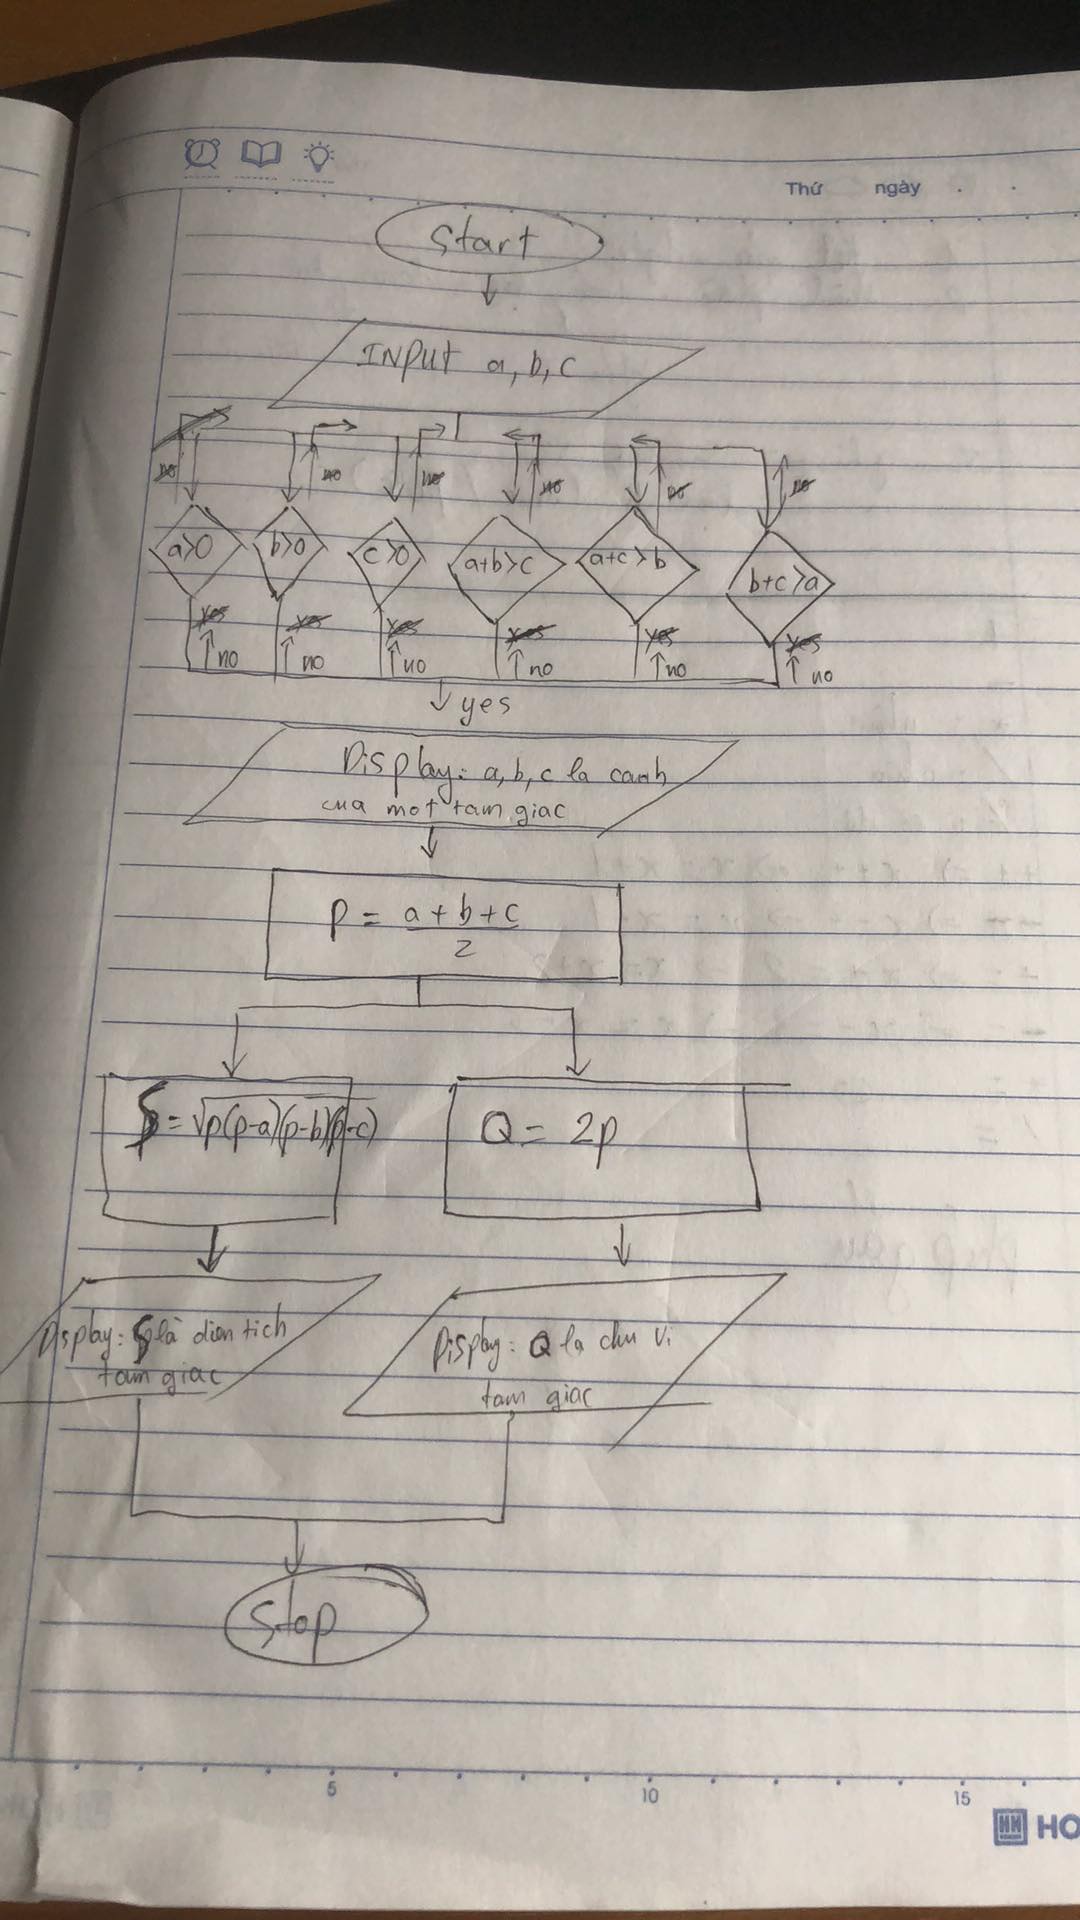 Thứ ngày
Start
INPUT a, b, c
no no no no no no
a>0 b>0 c>0 a+b>c a+c>b b+c>a
yes yes yes yes yes yes
no no no no no no
yes
Display: a, b, c la canh
cua mot tam giac
P = a+b+c
2
S = √p(p-a)(p-b)(p-c) Q = 2p
Display: S là dien tich
tam giac
Display: Q la chu vi
tam giac
Stop
5 10 15
HO